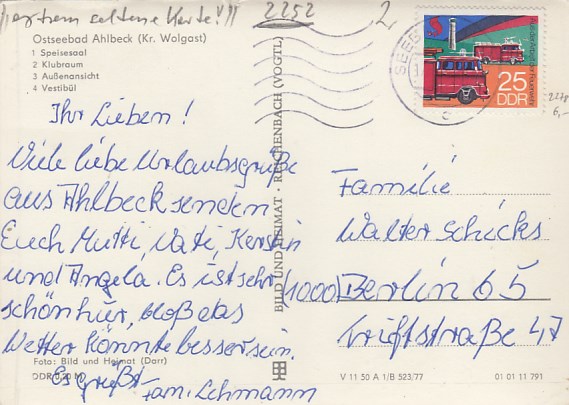 extrem seltene Karte!!!
2252
2,
Ostseebad Ahlbeck (Kr. Wolgast)
1 Speisesaal
2 Klubraum
3 Außenansicht
4 Vestibül
Ihr Lieben!
Viele liebe Urlaubsgrüße
aus Ahlbeck senden
Euch Mutti, Vati, Kerstin
und Angela. Es ist sehr
schön hier, bloß das
Wetter könnte besser sein.
Es grüßt
Fam. Lehmann
Foto: Bild und Heimat (Darr)
DDR 0,20 M
BILD UND HEIMAT · REICHENBACH (VOGTL)
25
DDR
2278
6,-
Familie
Walter Schicks
1000 Berlin 65
Triftstraße 47
V 11 50 A 1/B 523/77
01 01 11 791